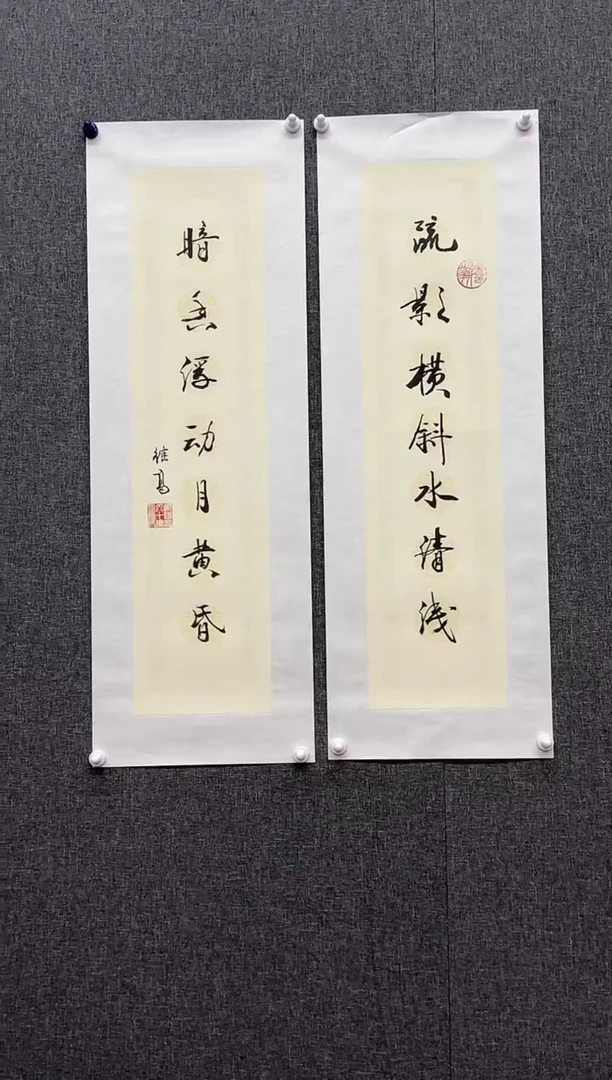 疏影横斜水清浅
暗香浮动月黄昏